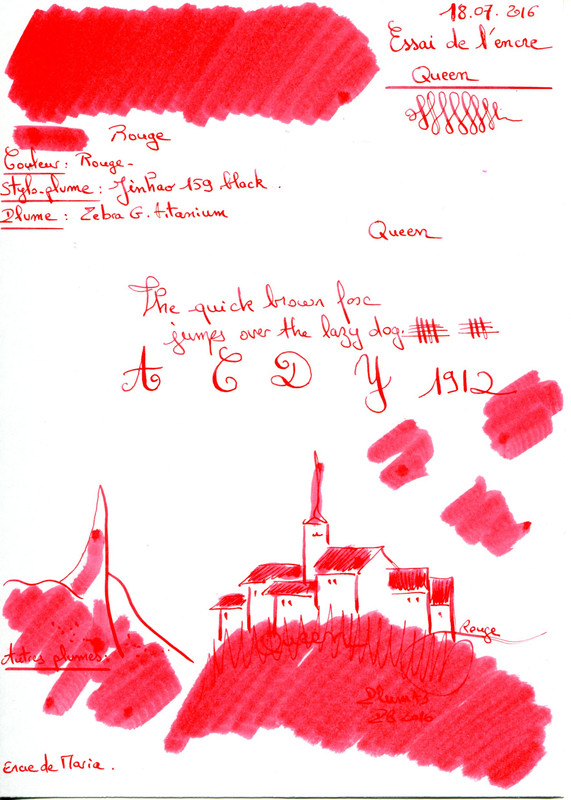 18.07.2016
Essai de l'encre
Queen
Rouge
Couleur : Rouge -
Stylo-plume : Jinhao 159 black .
Plume : Zebra G. titanium
Queen
The quick brown fox
jumps over the lazy dog.
A C D Y 1912
Rouge
Queen
Autres plumes :
2016
Encre de Maria .